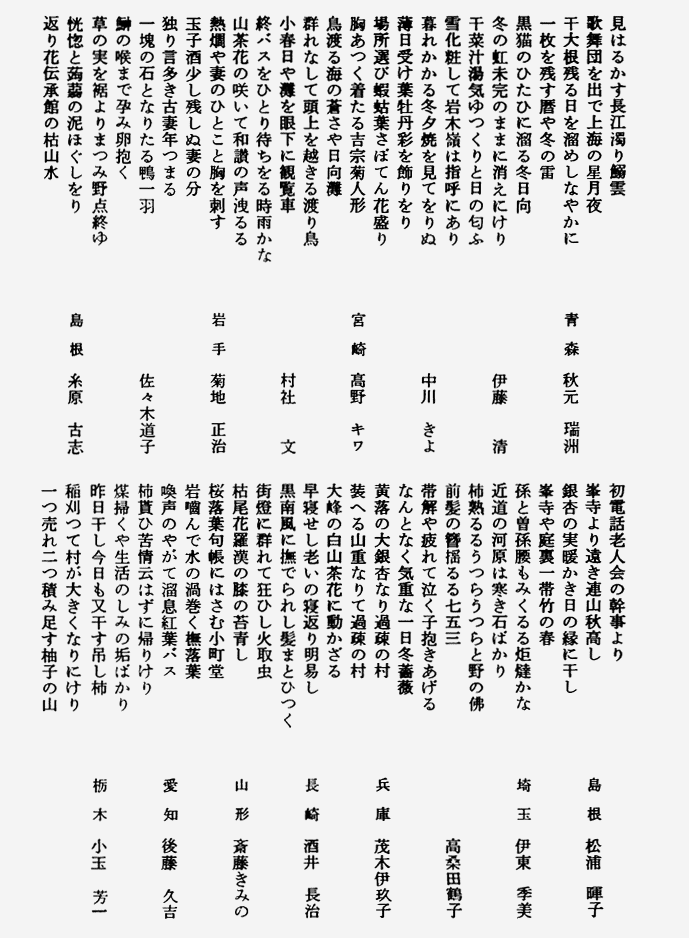 見はるかす長江濁り鰯雲
歌舞団を出で上海の星月夜
干大根残る日を溜めしなやかに
一枚を残す暦や冬の雷
黒猫のひたひに溜る冬日向
冬の虹未完のままに消えにけり
干菜汁湯気ゆつくりと日の匂ふ
雪化粧して岩木嶺は指呼にあり
暮れかかる冬夕焼を見てをりぬ
薄日受け葉牡丹彩を飾りをり
場所選び蝦蛄葉さぼてん花盛り
胸あつく着たる吉宗菊人形
鳥渡る海の蒼さや日向灘
群れなして頭上を越きる渡り鳥
小春日や灘を眼下に観覧車
終バスをひとり待ちをる時雨かな
山茶花の咲いて和讃の声洩るる
熱燗や妻のひとこと胸を刺す
玉子酒少し残しぬ妻の分
独り言多き古妻年つまる
一塊の石となりたる鴨一羽
の喉まで孕み卵抱く
草の実を裾よりまつみ野点終ゆ
恍惚と蒟蒻の泥ほぐしをり
返り花伝承館の枯山水
青森 秋元 瑞洲
伊藤 清
中川 きよ
宮崎 高野 キワ
村社 文
岩手 菊地 正治
佐々木道子
島根 糸原 古志
初電話老人会の幹事より
峯寺より遠き連山秋高し
銀杏の実暖かき日の縁に干し
峯寺や庭裏一帯竹の春
孫と曽孫腰もみくるる炬燵かな
近道の河原は寒き石ばかり
柿熟るるうつらうつらと野の佛
前髪の簪揺るる七五三
帯解や疲れて泣く子抱きあげる
なんとなく気重な一日冬薔薇
黄落の大銀杏なり過疎の村
装へる山重なりて過疎の村
大峰の白山茶花に動かざる
早寝せし老いの寝返り明易し
黒南風に撫でられし髪まとひつく
街燈に群れて狂ひし火取虫
枯尾花羅漢の膝の苔青し
桜落葉句帳にはさむ小町堂
岩嚙んで水の渦巻く橅落葉
喚声のやがて溜息紅葉バス
柿貰ひ苦情云はずに帰りけり
煤掃くや生活のしみの垢ばかり
昨日干し今日も又干す吊し柿
稲刈つて村が大きくなりにけり
一つ売れ二つ積み足す柚子の山
島根 松浦 暉子
埼玉 伊東 季美
高桑田鶴子
兵庫 茂木伊玖子
長崎 酒井 長治
山形 斎藤きみの
愛知 後藤 久吉
栃木 小玉 芳一